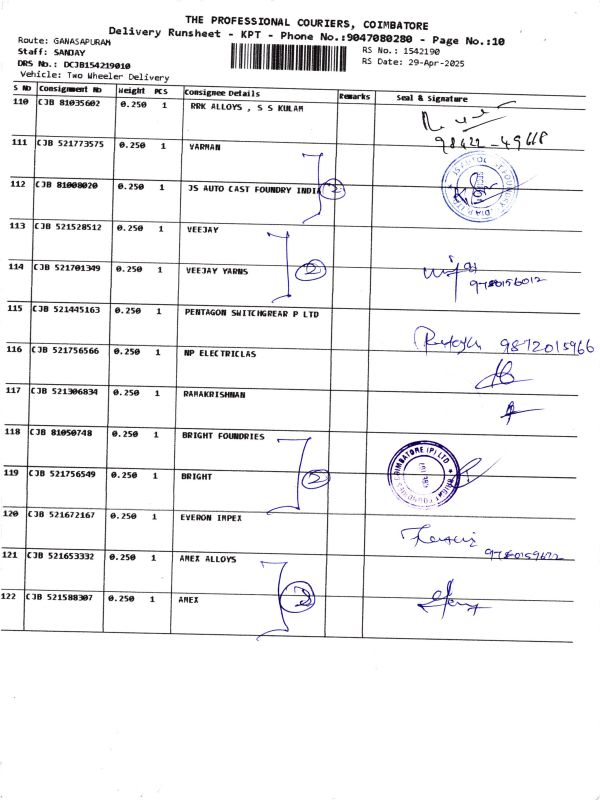 THE PROFESSIONAL COURIERS, COIMBATORE
Delivery Runsheet - KPT - Phone No.:9047080280 - Page No.:10
Route: GANASAPURAM
RS No.: 1542190
Staff: SANJAY
RS Date: 29-Apr-2025
DRS No.: DCJB154219010
Vehicle: Two Wheeler Delivery
S No Consignment No Weight PCS Consignee Details Remarks Seal & Signature
110 CJB 81035602 0.250 1 RRK ALLOYS , S S KULAM
98422-49668
111 CJB 521773575 0.250 1 VARMAN
112 CJB 81008020 0.250 1 JS AUTO CAST FOUNDRY INDIA 2
113 CJB 521528512 0.250 1 VEEJAY
114 CJB 521701349 0.250 1 VEEJAY YARNS 2
115 CJB 521445163 0.250 1 PENTAGON SWITCHGREAR P LTD
9872015966
116 CJB 521756566 0.250 1 NP ELECTRICLAS
117 CJB 521306834 0.250 1 RAMAKRISHNAN
118 CJB 81050748 0.250 1 BRIGHT FOUNDRIES
119 CJB 521756549 0.250 1 BRIGHT 2
120 CJB 521672167 0.250 1 EVERON IMPEX
121 CJB 521653332 0.250 1 AMEX ALLOYS
122 CJB 521588307 0.250 1 AMEX